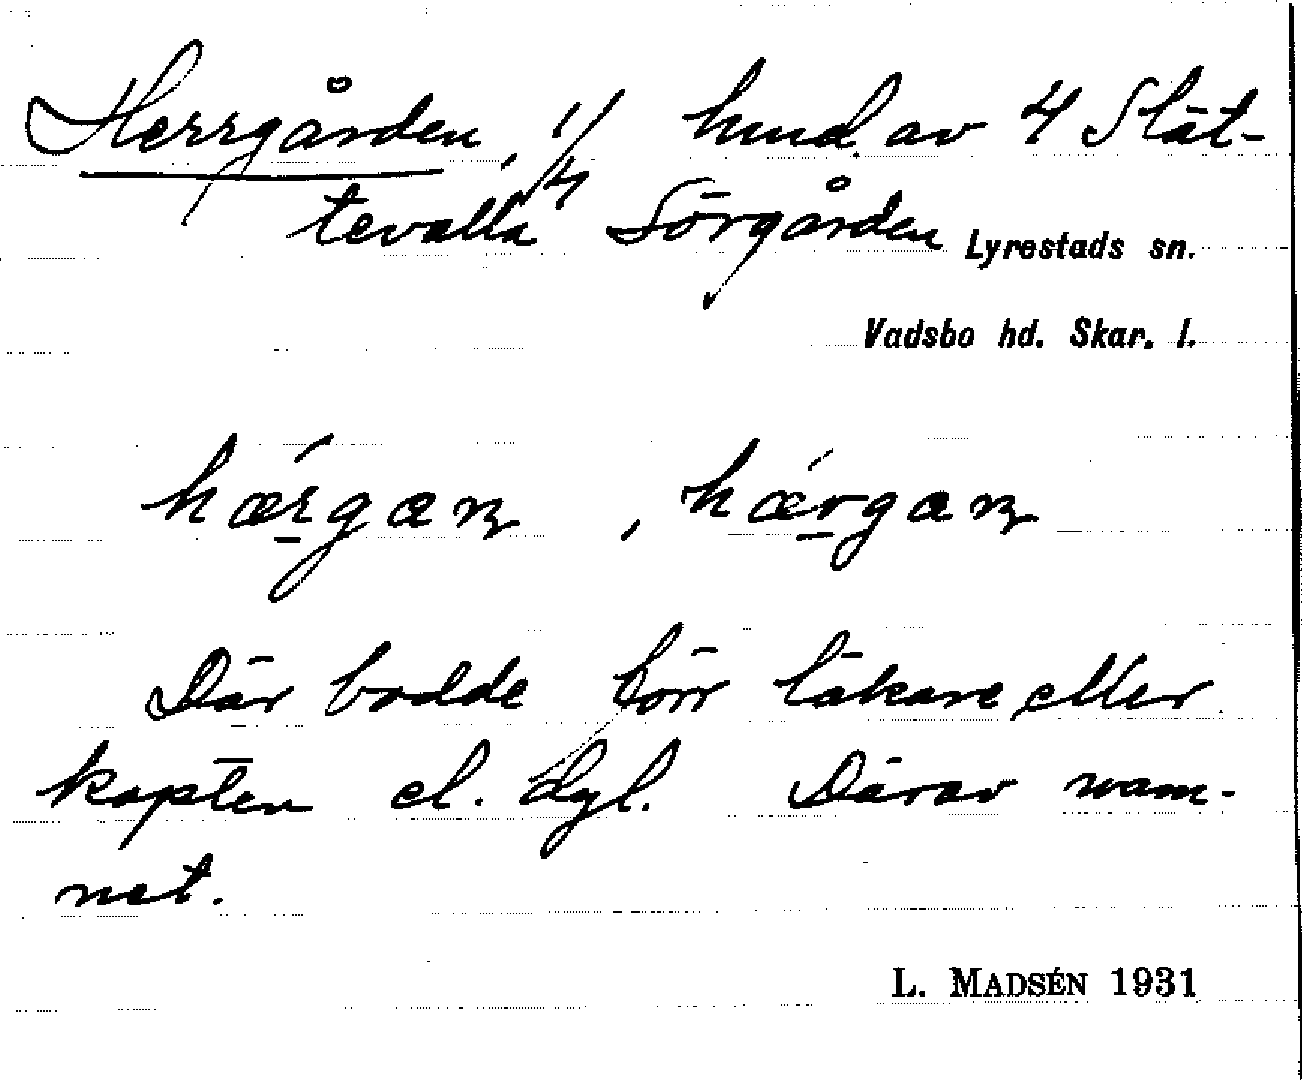 Herrgården, 1/4 hmd. av 4 Slät-
tevalla Sörgården Lyrestads sn.
Vadsbo hd. Skar. l.
hǽrgan , hǽrgan
Där bodde förr läkare eller
kapten el. dyl. Därav nam-
net.
L. MADSÉN 1931